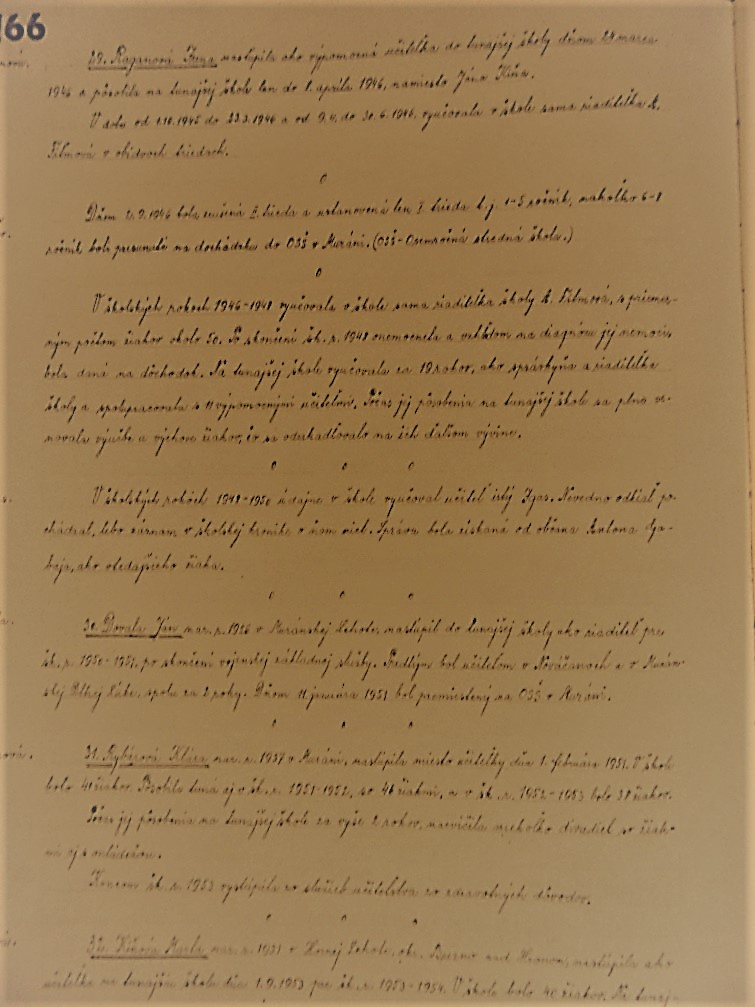 166
29. Raganová Irena nastúpila ako výpomocná učiteľka do tunajšej školy dňom 24 marca
1946 a pôsobila na tunajšej škole len do 1. apríla 1946, namiesto Jána
V dobe od 1.10.1945 do 23.3.1946 a od 9.4. do 30.6.1946, vyučovala v škole sama riaditeľka A.
Filmová v obidvoch triedach.
Dňom 2.9.1946 bola zrušená II. trieda a ustanovená len I. trieda t.j. 1-5 ročník, nakoľko 6-8
ročník boli presunuté na dochádzku do OSŠ v Muráni. (OSŠ-Osemročná stredná škola.)
V školských rokoch 1946-1948 vyučovala v škole sama riaditeľka školy A. Filmová, s priemer-
ným počtom žiakov okolo 50. Po skončení šk. r. 1948 onemocnela a vzhľadom na diagnózu jej nemoci,
bola daná na dôchodok. Na tunajšej škole vyučovala za 19 rokov, ako správkyňa a riaditeľka
školy a spolupracovala s 11 výpomocnými učiteľmi. Počas jej pôsobenia na tunajšej škole sa plne ve-
novala výučbe a výchove žiakov, čo sa odzrkadľovalo na ich ďalšom vývine.
V školských rokoch 1948-1950 údajne v škole vyučoval učiteľ istý Igas. Nevedno odkiaľ po-
chádzal, lebo záznam v školskej kronike o ňom niet. Správa bola získaná od občana Antona Ga-
baja, ako vtedajšieho žiaka.
30. Dovala Ján nar. r. 1926 v Muránskej Lehote, nastúpil do tunajšej školy ako riaditeľ pre
šk. r. 1950-1951, po skončení vojenskej základnej služby. Predtým bol učiteľom v Nováčanoch a v Murán-
skej Dlhej Lúke, spolu za 2 roky. Dňom 11. januára 1951 bol premiestnený na OSŠ v Muráni.
31. Rybárová Klára nar. r. 1937 v Muráni, nastúpila miesto učiteľky dňa 1. februára 1951. V škole
bolo 41 žiakov. Pôsobila tuná aj v šk. r. 1951-1952, so 46 žiakmi, a v šk. r. 1952-1953 bolo 38 žiakov.
Počas jej pôsobenia na tunajšej škole za vyše 2 rokov, nacvičila niekoľko divadiel so žiak-
mi aj s mládežou.
Koncom šk. r. 1953 vystúpila zo služieb učiteľstva zo zdravotných dôvodov.
32. Marta nar. r. 1931 v Hornej Lehote, okr. Brezno nad Hronom, nastúpila ako
učiteľka na tunajšiu školu dňa 1.9.1953 pre šk. r. 1953-1954. V škole bolo 40 žiakov. Na tunaj-